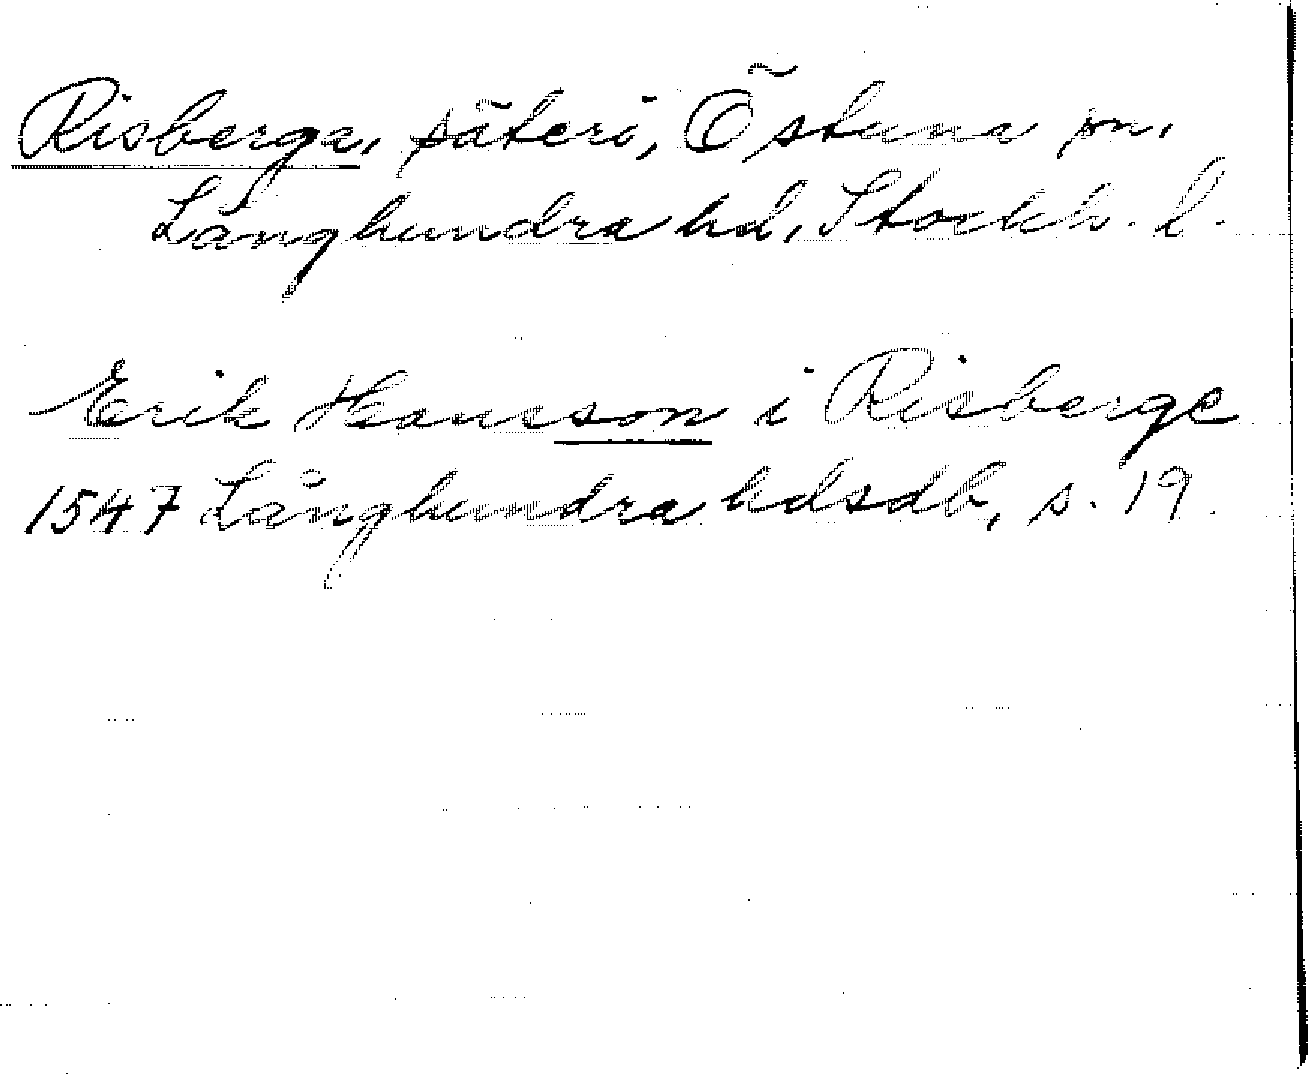 Risberga, säteri, Östuna sn.
Långhundra hd, Stockh. l.
Erik Hansson i Risberge
1547 Långhundra hdsdb, s. 19.